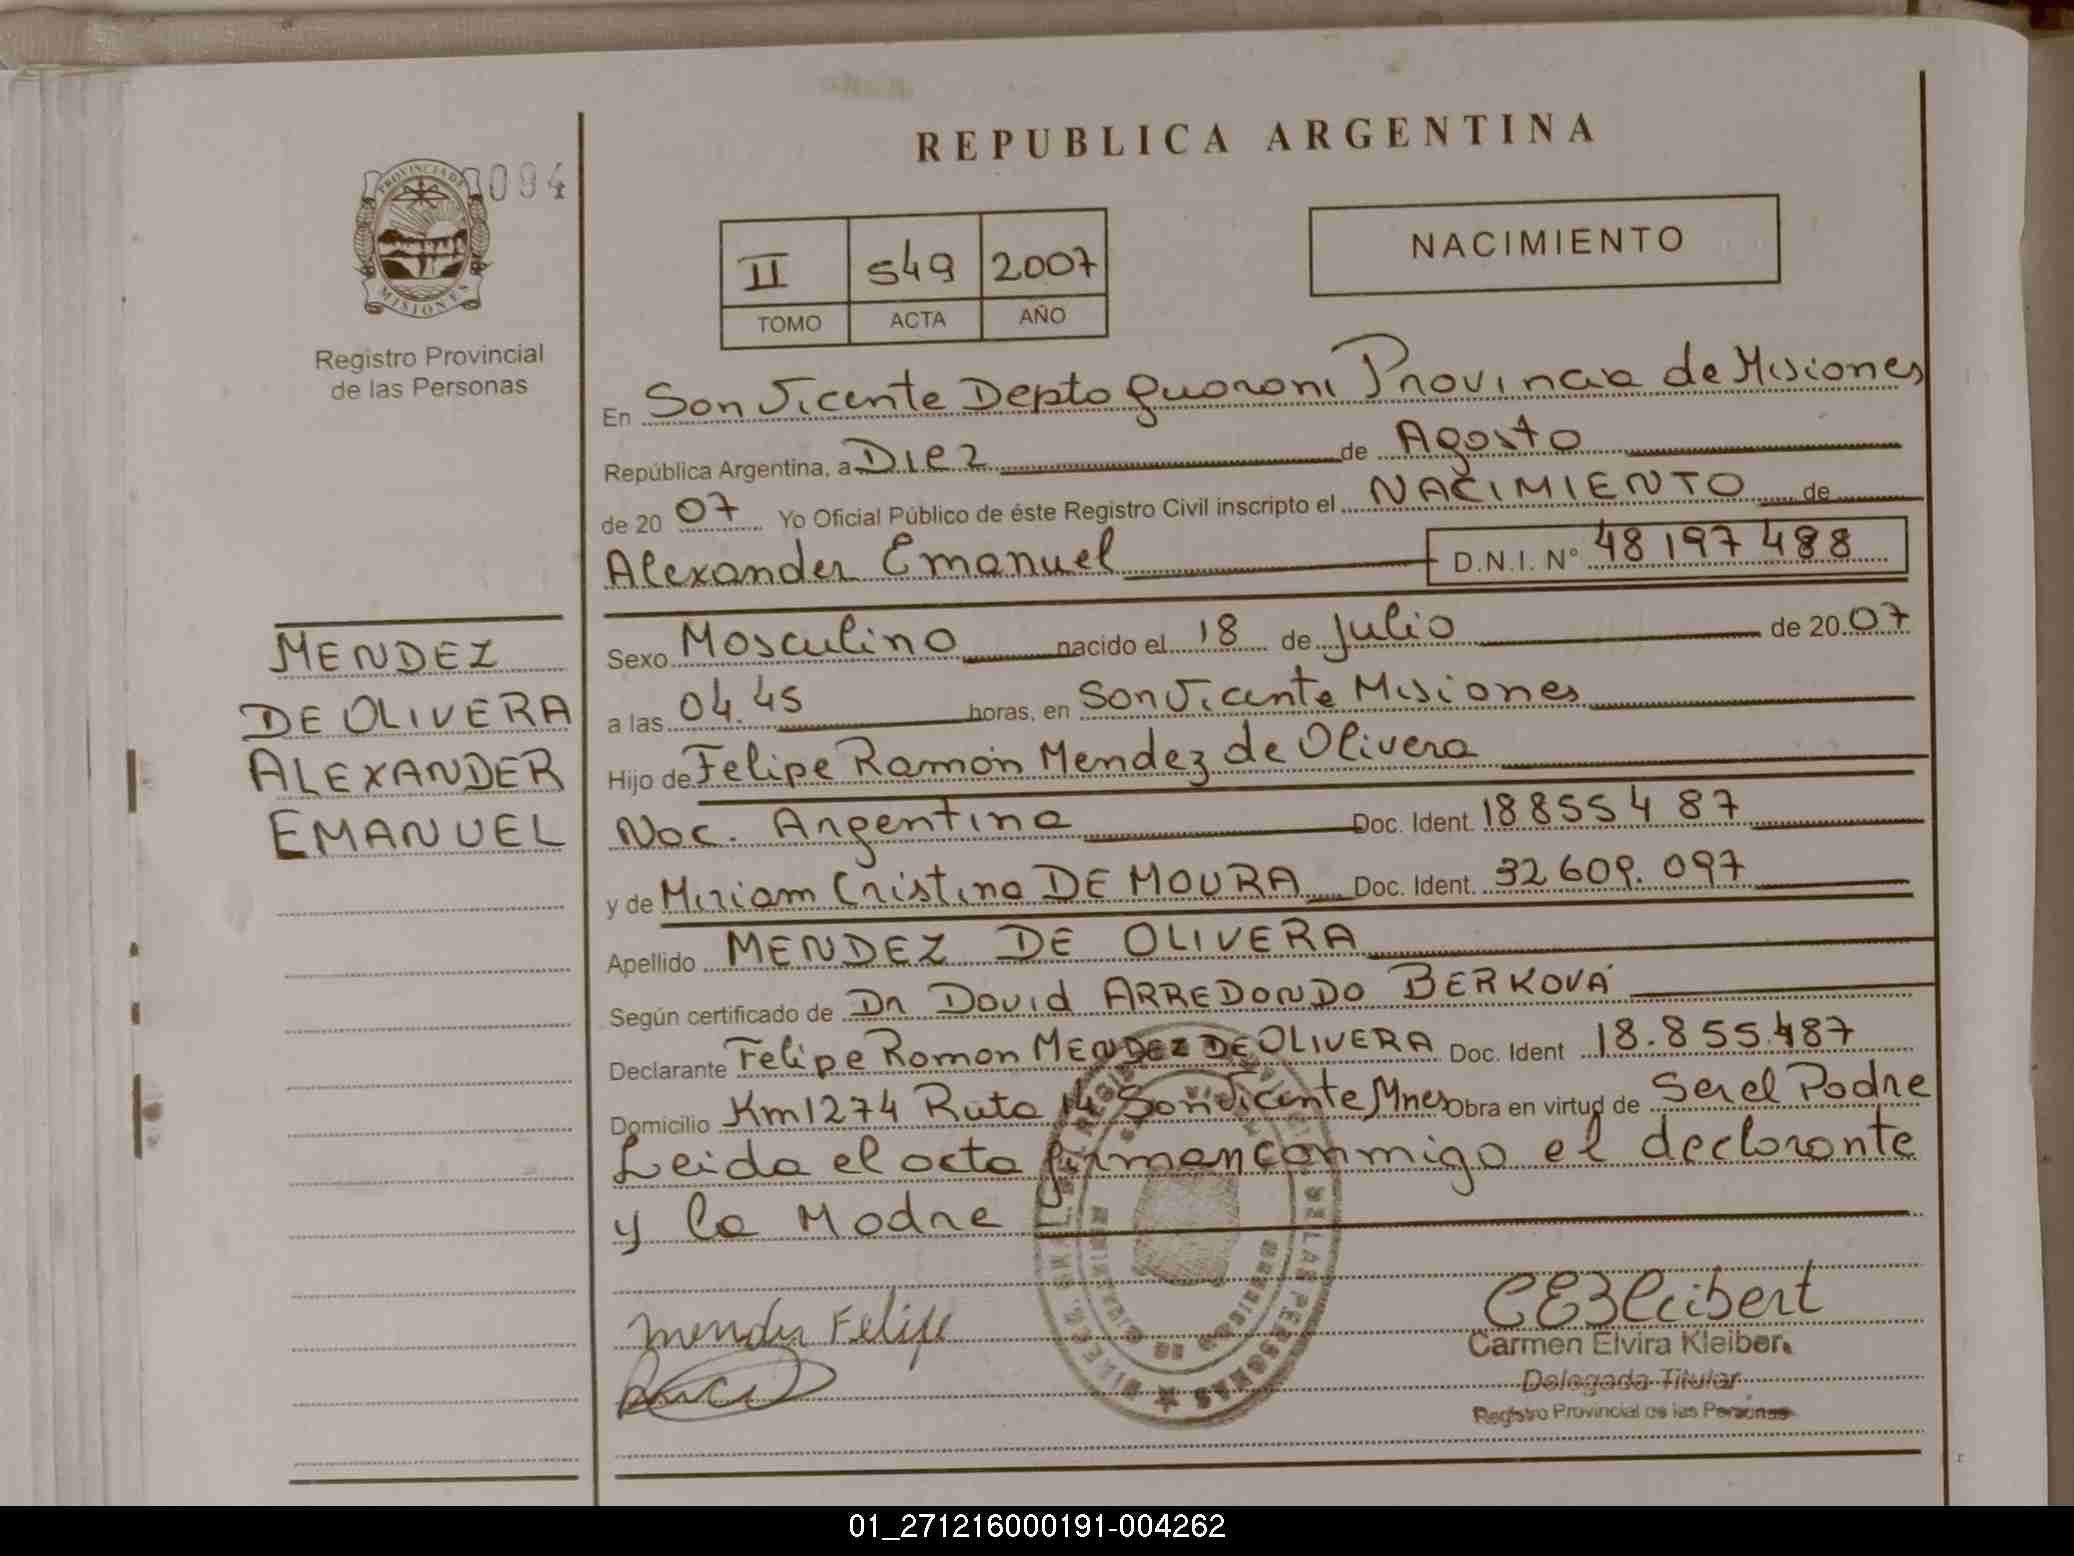 REPUBLICA ARGENTINA
PROVINCIA DE
MISIONES
094
Registro Provincial
de las Personas
II 549 2007
TOMO ACTA AÑO
NACIMIENTO
En San Vicente Depto Guarani Provincia de Misiones
República Argentina, a Diez de Agosto
de 2007 Yo Oficial Público de éste Registro Civil inscripto el NACIMIENTO de
Alexander Emanuel D.N.I. N° 48197488
Sexo Masculino nacido el 18 de Julio de 2007
a las 04.45 horas, en San Vicente Misiones
Hijo de Felipe Ramón Mendez de Olivera
Nac. Argentina Doc. Ident. 18855487
y de Miriam Cristina DE MOURA Doc. Ident. 32609.097
Apellido MENDEZ DE OLIVERA
Según certificado de Dr David ARREDONDO BERKOVÁ
Declarante Felipe Ramon MENDEZ DE OLIVERA Doc. Ident 18.855.487
Domicilio Km1274 Ruta 14 San Vicente Mnes Obra en virtud de Ser el Padre
Leida el acta firman conmigo el declarante
y la Madre
MENDEZ
DE OLIVERA
ALEXANDER
EMANUEL
Mendez Felipe
CEKleibert
Carmen Elvira Kleiber
Delegada Titular
Registro Provincial de las Personas
DE LAS PERSONAS
01_271216000191-004262